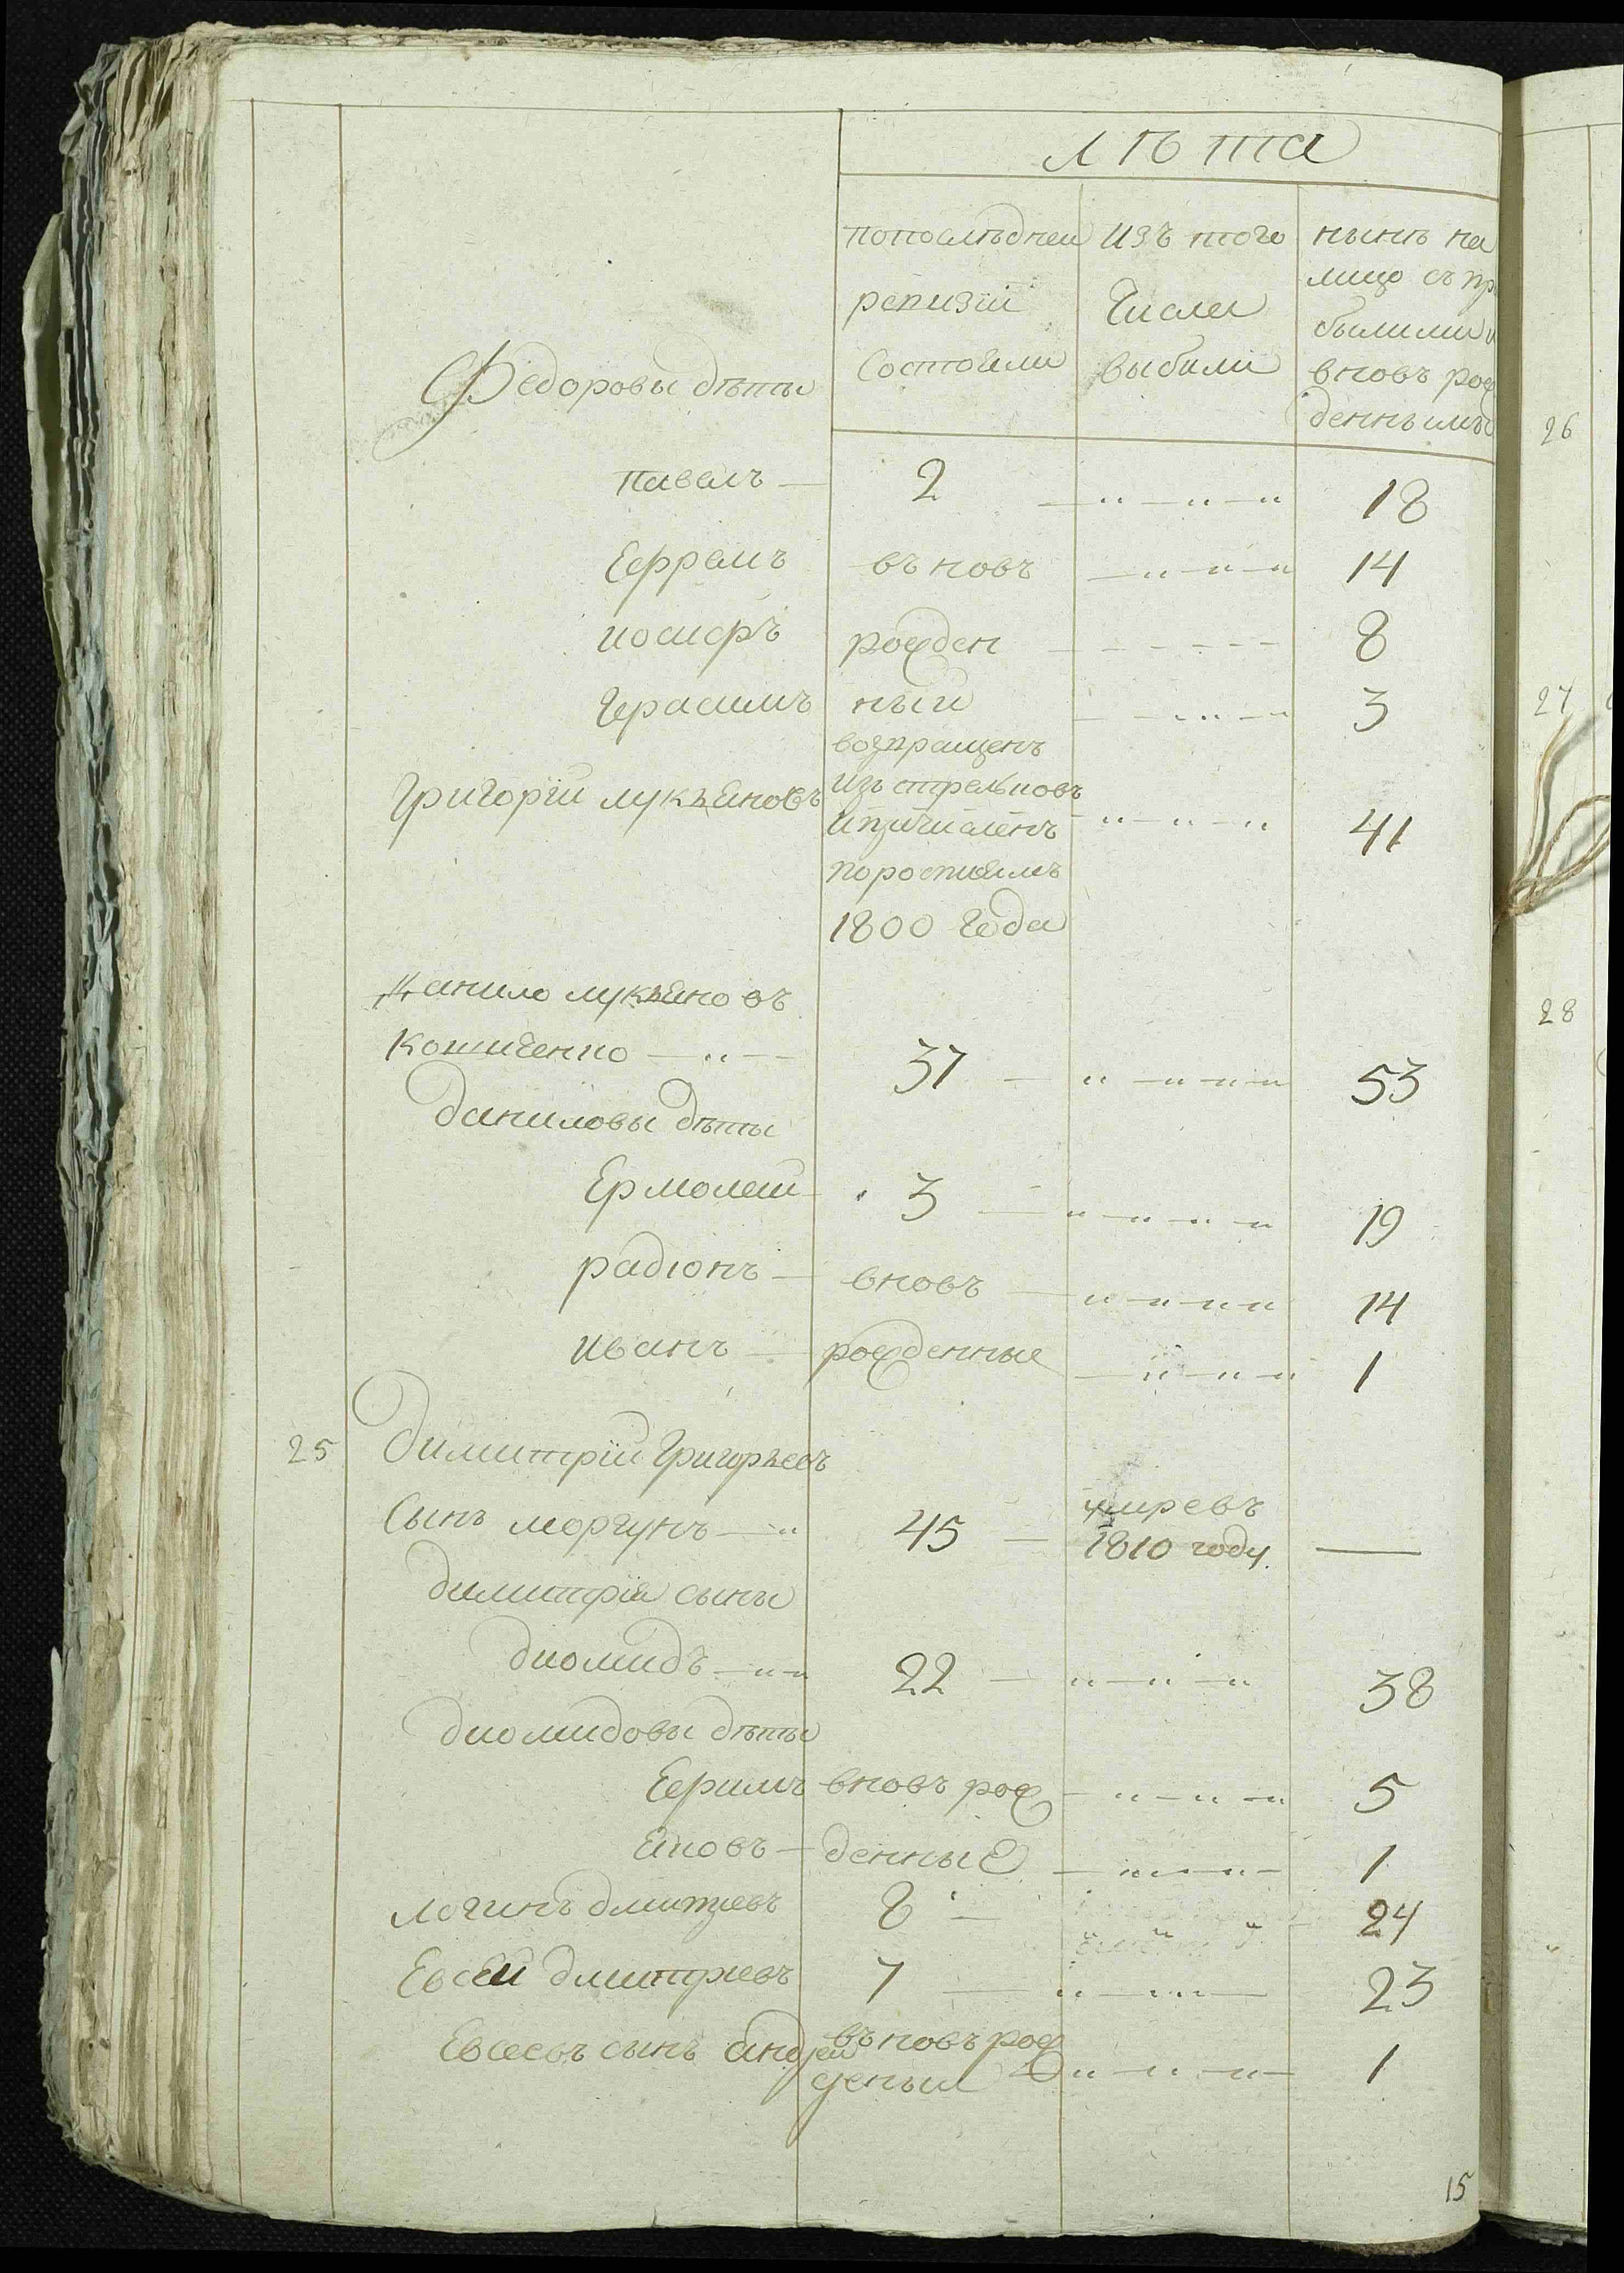 лѣта
попослѣдней
ревизіи
состояли
изъ того
числа
выбыли
нынѣ на
лицо съ пр
былыми и
вновь рож
деннъими
Федоровы дѣты
павелъ — 2 18
Ефремъ въновъ 14
иосифъ рожден 8
Герасимъ ный 3
возвращенъ
Григорій лукъяновъ изъ стрелковъ
ипричисленъ 41
1800 года
Данило лукъяновъ
Кошиченко 37 53
даниловы дѣты
Ермолей 3 19
радіонъ — вновъ 14
иванъ — рожденные 1
25 димитрій Григорьевъ
сынъ моргунъ 45 умре въ
1810 году —
димитрія сыны
диомидъ 22 38
диомидовы дѣты
Ефимъ вновъ рож 5
яковъ — денные 1
логинъ дмитріевъ 8 24
Евсей дмитріевъ 7 23
Евсеевъ сынъ андрей въновъ рож
деныи 1
15
26
27
28